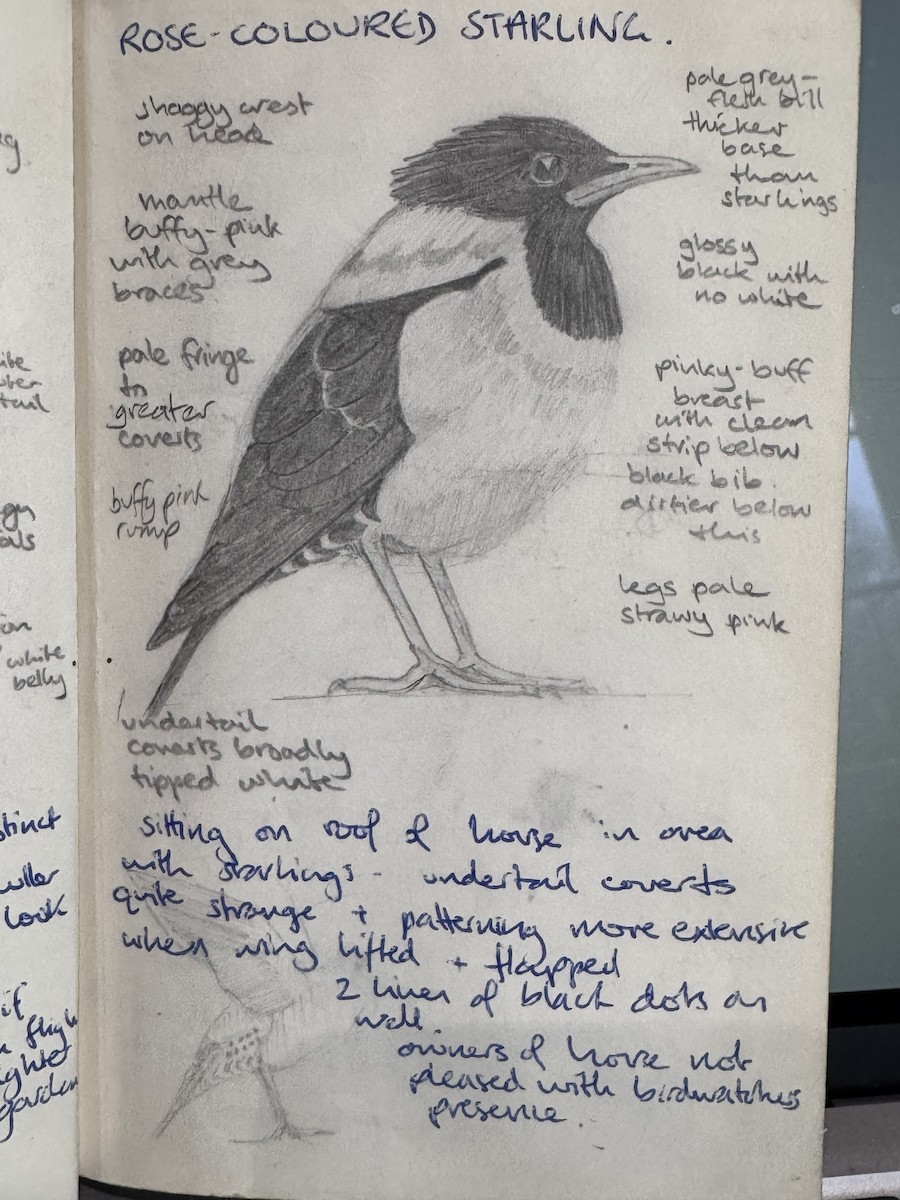 ROSE-COLOURED STARLING.
shaggy crest
on head
mantle
buffy-pink
with grey
braces
pale fringe
to
greater
coverts
buffy pink
rump
undertail
coverts broadly
tipped white
pale grey-
flesh bill
thicker
base
than
starlings
glossy
black with
no white
pinky-buff
breast
with clean
strip below
black bib.
dirtier below
this
legs pale
strawy pink
sitting on roof of house in area
with starlings - undertail coverts
quite strange + patterning more extensive
when wing lifted + flapped
2 lines of black dots on
well.
owners of house not
pleased with birdwatchers
presence.
white
belly
look
garden